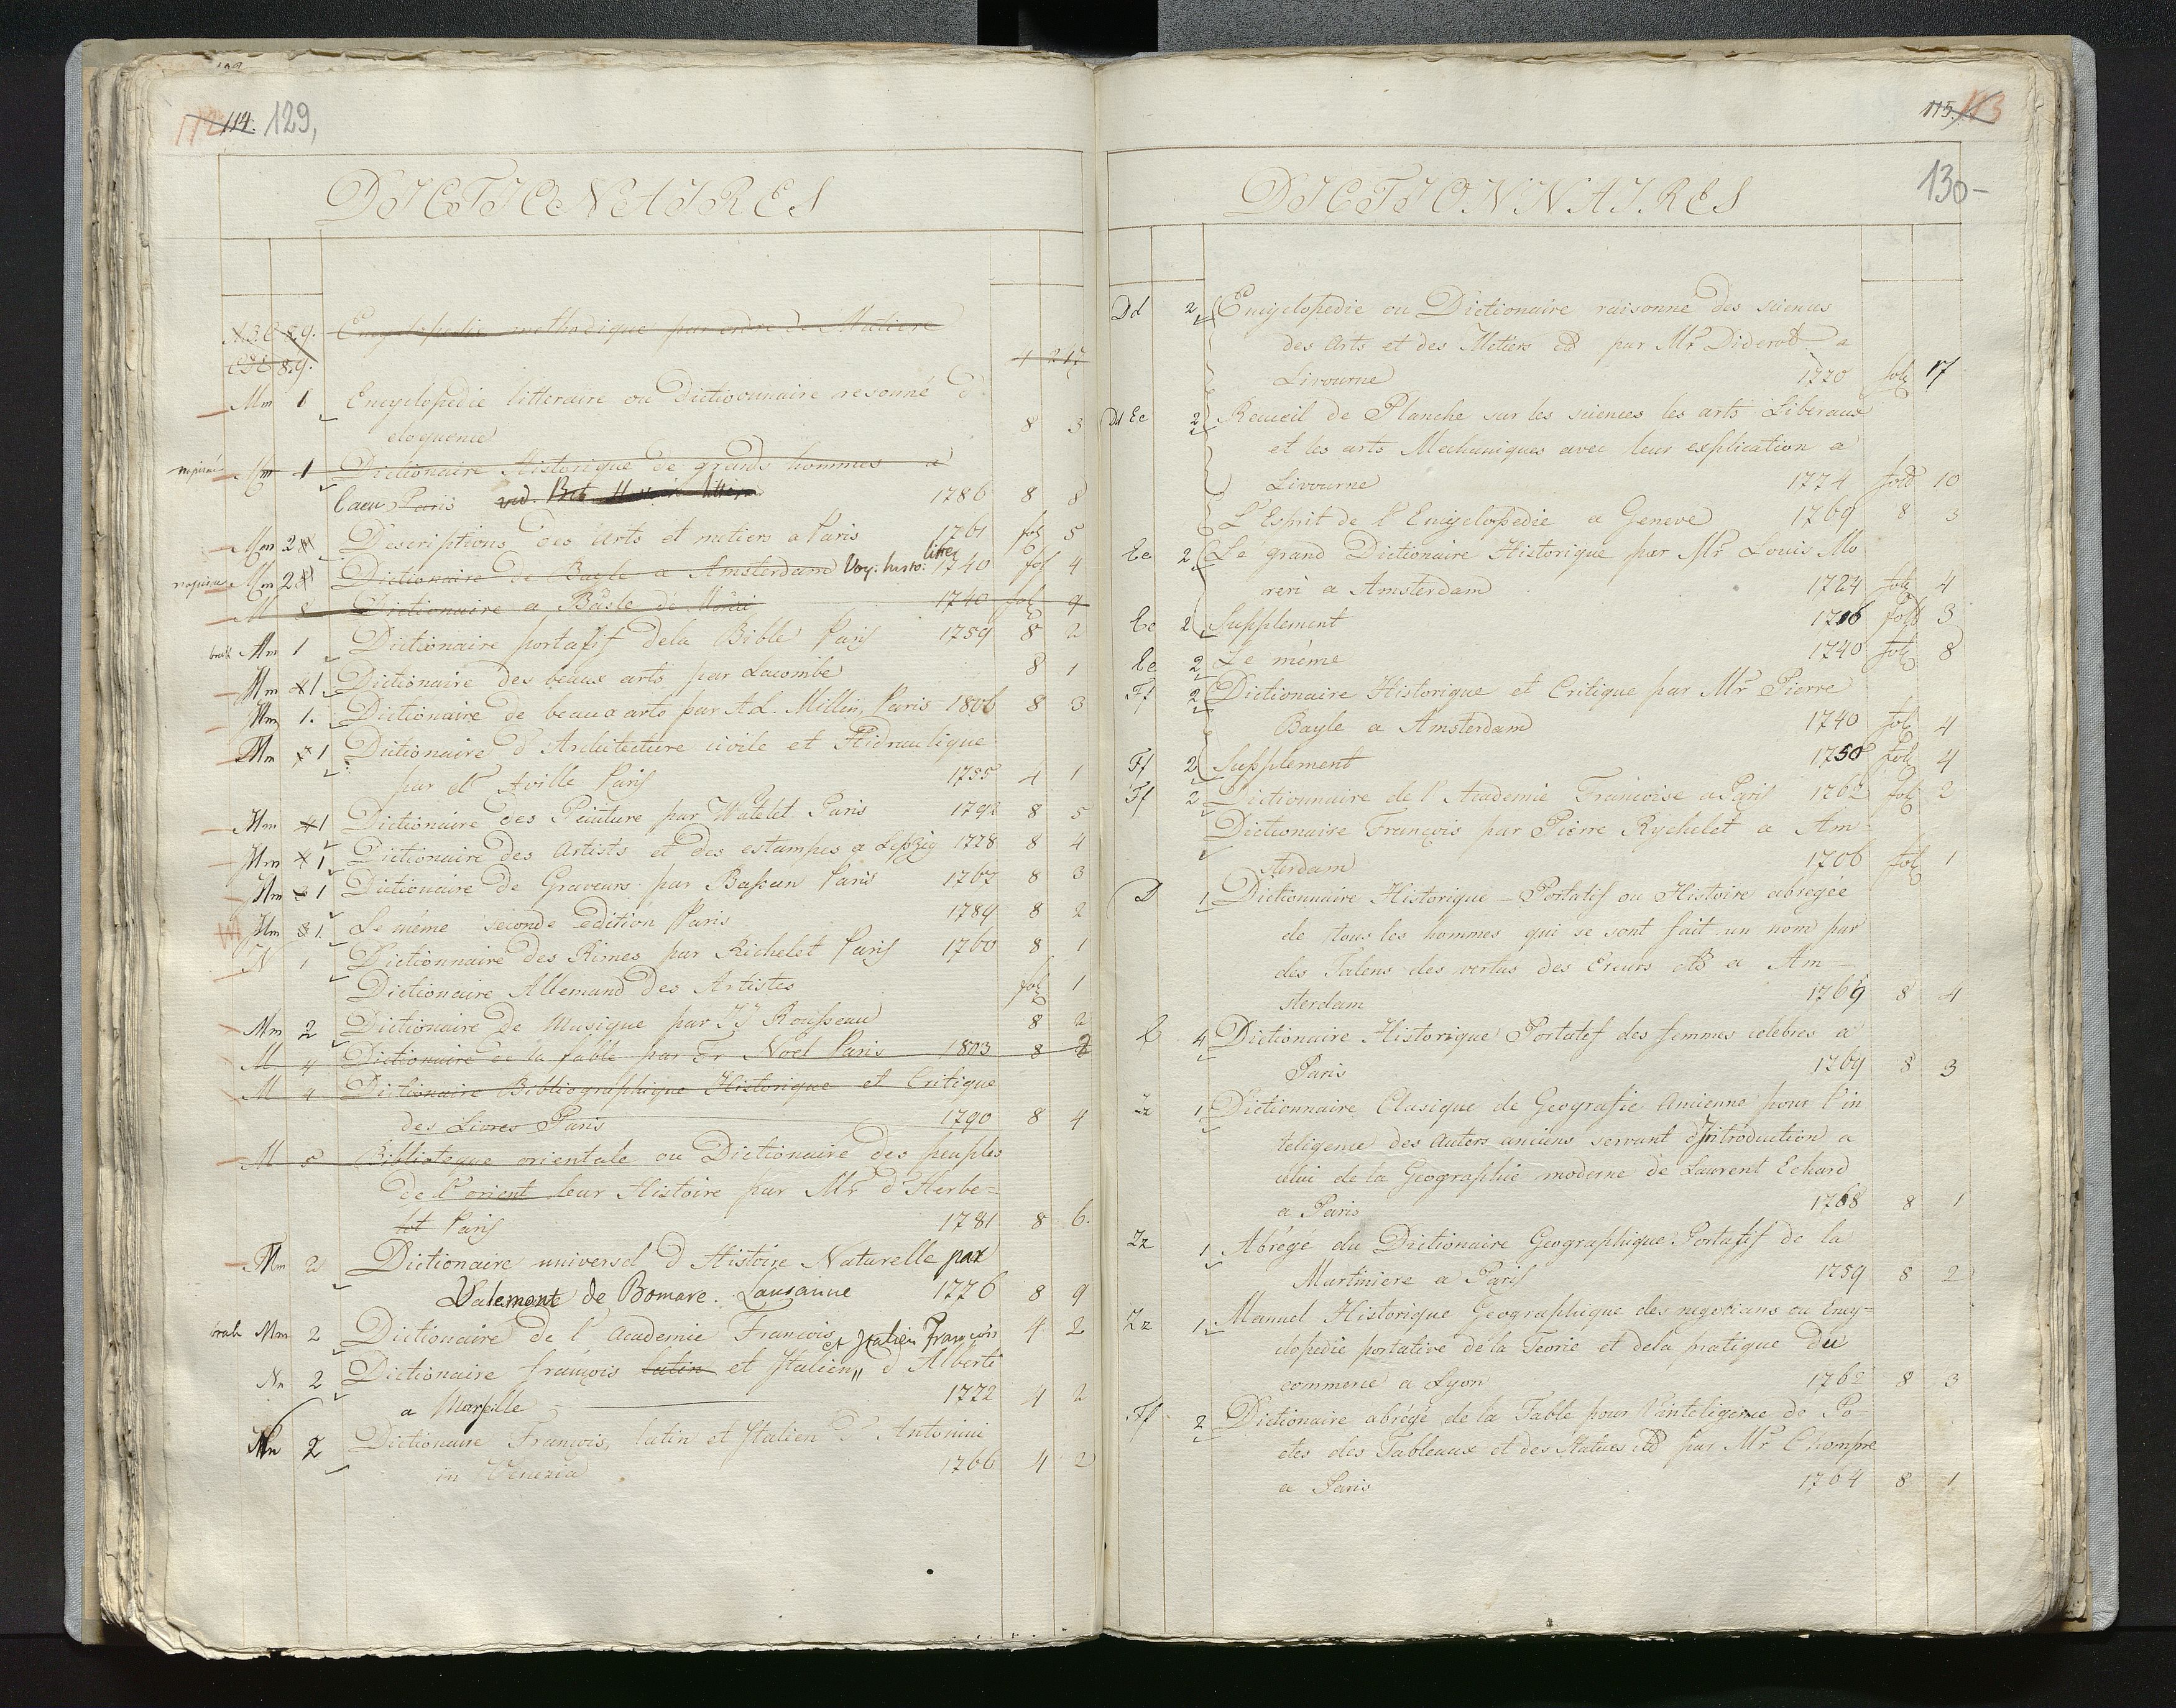 112 114. 129,
DICTIONAIRES
A.B.C 8.9. Encyclopedie methodique par ordre de Matiere
8.9. 4 217
Mm 1 Encyclopedie litteraire ou dictionnaire resonné d'
eloquence 8 3
Mm 1 Dictionaire Historique de grands hommes a
Caen Paris vid. 1786 8 8
Mm 2 Descriptions des Arts et metiers a Paris 1761 fol 5
Mm 2 Dictionaire de Bayle a Amsterdam Voy: histo: litter 1740 fol 4
M 8 Dictionaire a Basle de 1740 fol 9
Mm 1 Dictionaire portatif dela Bible Paris 1759 8 2
Mm 1 Dictionaire des beaux arts par Lacombe 8 1
Mm 1. Dictionaire de beaux arts par A.L. Millin, Paris 1806 8 3
Mm 1 Dictionaire d'Architecture civile et Hidraulique
par d'Aville Paris 1755 4 1
Mm 1 Dictionaire des Peinture par Watelet Paris 1792 8 5
Mm 1 Dictionaire des Artists et des estampes a Lepzig 1778 8 4
Mm 1 Dictionaire de Graveurs par Bassan Paris 1767 8 3
Mm 1. Le même seconde edition Paris 1789 8 2
N 1 Dictionnaire des Rimes par Richelet Paris 1760 8 1
Dictionaire Allemand des Artistes fol 1
Mm 2 Dictionaire de Musique par JJ Rousseau 8 2
M 4 Dictionaire de la Fable par Fr Noel Paris 1803 8 2
M 4 Dictionaire Bibliographique Historique et Critique
des Livres Paris 1790 8 4
M 5 Biblioteque orientale ou Dictionaire des peuples
de l'orient leur Histoire par Mr d'Herbe=
lot Paris 1781 8 6.
Mm 2 Dictionaire universel d'Histoire Naturelle par
Valemont de Bomare. Lausanne 1776 8 9
Mm 2 Dictionaire de l'Academie François 4 2
et Italien François
Nn 2 Dictionaire françois latin et Italien,, d'Alberti
a Marseille 1772 4 2
Nn 2 Dictionaire François, latin et Italien d'Antonini
in Venezia 1766 4 2
115. 113
130-
DICTIONNAIRES
Dd 2 Encyclopedie ou Dictionaire raisonné des sciences
des Arts et des Metiers etc par Mr Diderot a
Livourne 1770 fol 17
Dd Ee 2 Recueil de Planche sur les sciences les arts Liberaux
et les arts Mechaniques avec leur explication a
Livourne 1774 fol 10
L'Esprit de l'Encyclopedie a Geneve 1769 8 3
Ee 2 Le grand Dictionaire Historique par Mr Louis Mo
reri a Amsterdam 1724 fol 4
Ee 2 Supplement 1716 fol 3
Ee 2 Le même 1740 fol 8
Ff 2 Dictionaire Historique et Critique par Mr Pierre
Bayle a Amsterdam 1740 fol 4
Ff 2 Supplement 1750 fol 4
Ff 2 Dictionnaire de l'Academie Francoise a Paris 1762 fol 2
Dictionaire François par Pierre Rychelet a Am
sterdam 1706 fol 1
D 1 Dictionnaire Historique - Portatif ou Histoire abregée
de tous les hommes qui se sont fait un nom par
des Talens des vertus des Ereurs etc a Am-
sterdam 1769 8 4
4 Dictionaire Historique Portatif des femmes celebres a
Paris 1769 8 3
Zz 1 Dictionnaire Clasique de Geografie Ancienne pour l'in
teligence des Auters anciens servant d'Introduction a
celui de la Geographie moderne de Laurent Echard
a Paris 1768 8 1
Zz 1 Abrége du Dictionaire Geographique Portatif de la
Martiniere a Paris 1759 8 2
Zz 1 Manuel Historique Geographique des negotians ou Ency=
clopedie portative de la Teorie et dela pratique du
commerce a Lyon 1762 8 3
Ff 2 Dictionaire abrégé de la Fable pour l'inteligence de Po-
etes des Tableaux et des Statues etc par Mr Chompre
a Paris 1764 8 1